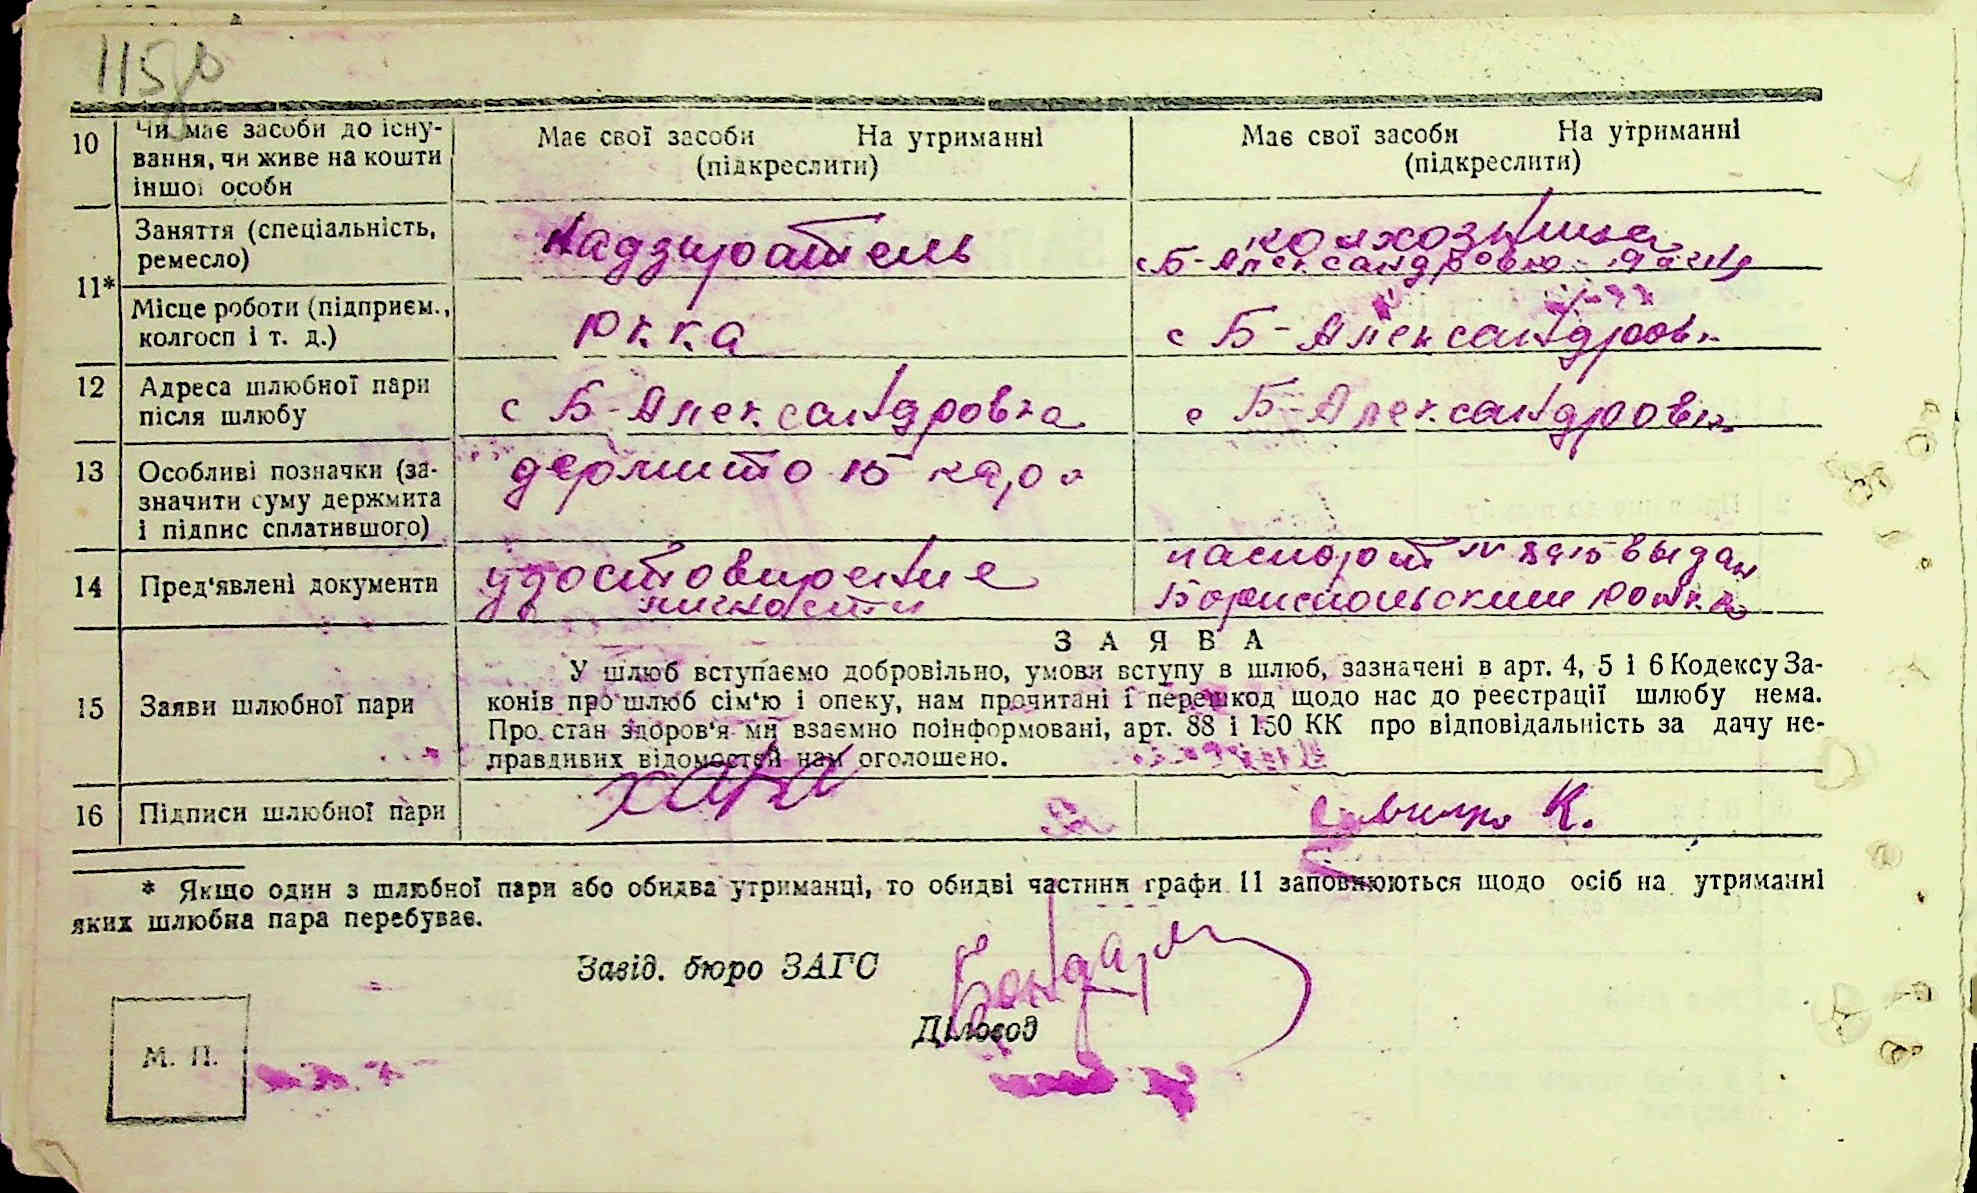 115
10
Чи має засоби до існу-
вання, чи живе на кошти
іншої особи
Має свої засоби На утриманні
(підкреслити)
Має свої засоби На утриманні
(підкреслити)
11*
Заняття (спеціальність,
ремесло)
Надзиратель
колхозница
с Б-Александровка
Місце роботи (підприєм.,
колгосп і т. д.)
с Б-Александровк
12
Адреса шлюбної пари
після шлюбу
с Б-Александровка
с Б-Александровк
13
Особливі позначки (за-
значити суму держмита
і підпис сплатившого)
держмито 15 кар
14
Пред'явлені документи
удостовирение
личности
паспорт № выдан
Бориспольским
15
Заяви шлюбної пари
ЗАЯВА
У шлюб вступаємо добровільно, умови вступу в шлюб, зазначені в арт. 4, 5 і 6 Кодексу За-
конів про шлюб сім'ю і опеку, нам прочитані і перешкод щодо нас до реєстрації шлюбу нема.
Про стан здоров'я ми взаємно поінформовані, арт. 88 і 150 КК про відповідальність за дачу не-
правдивих відомостей нам оголошено.
16
Підписи шлюбної пари
К.
* Якщо один з шлюбної пари або обидва утриманці, то обидві частини графи 11 заповнюються щодо осіб на утриманні
яких шлюбна пара перебуває.
Завід. бюро ЗАГС
Діловод
М. П.